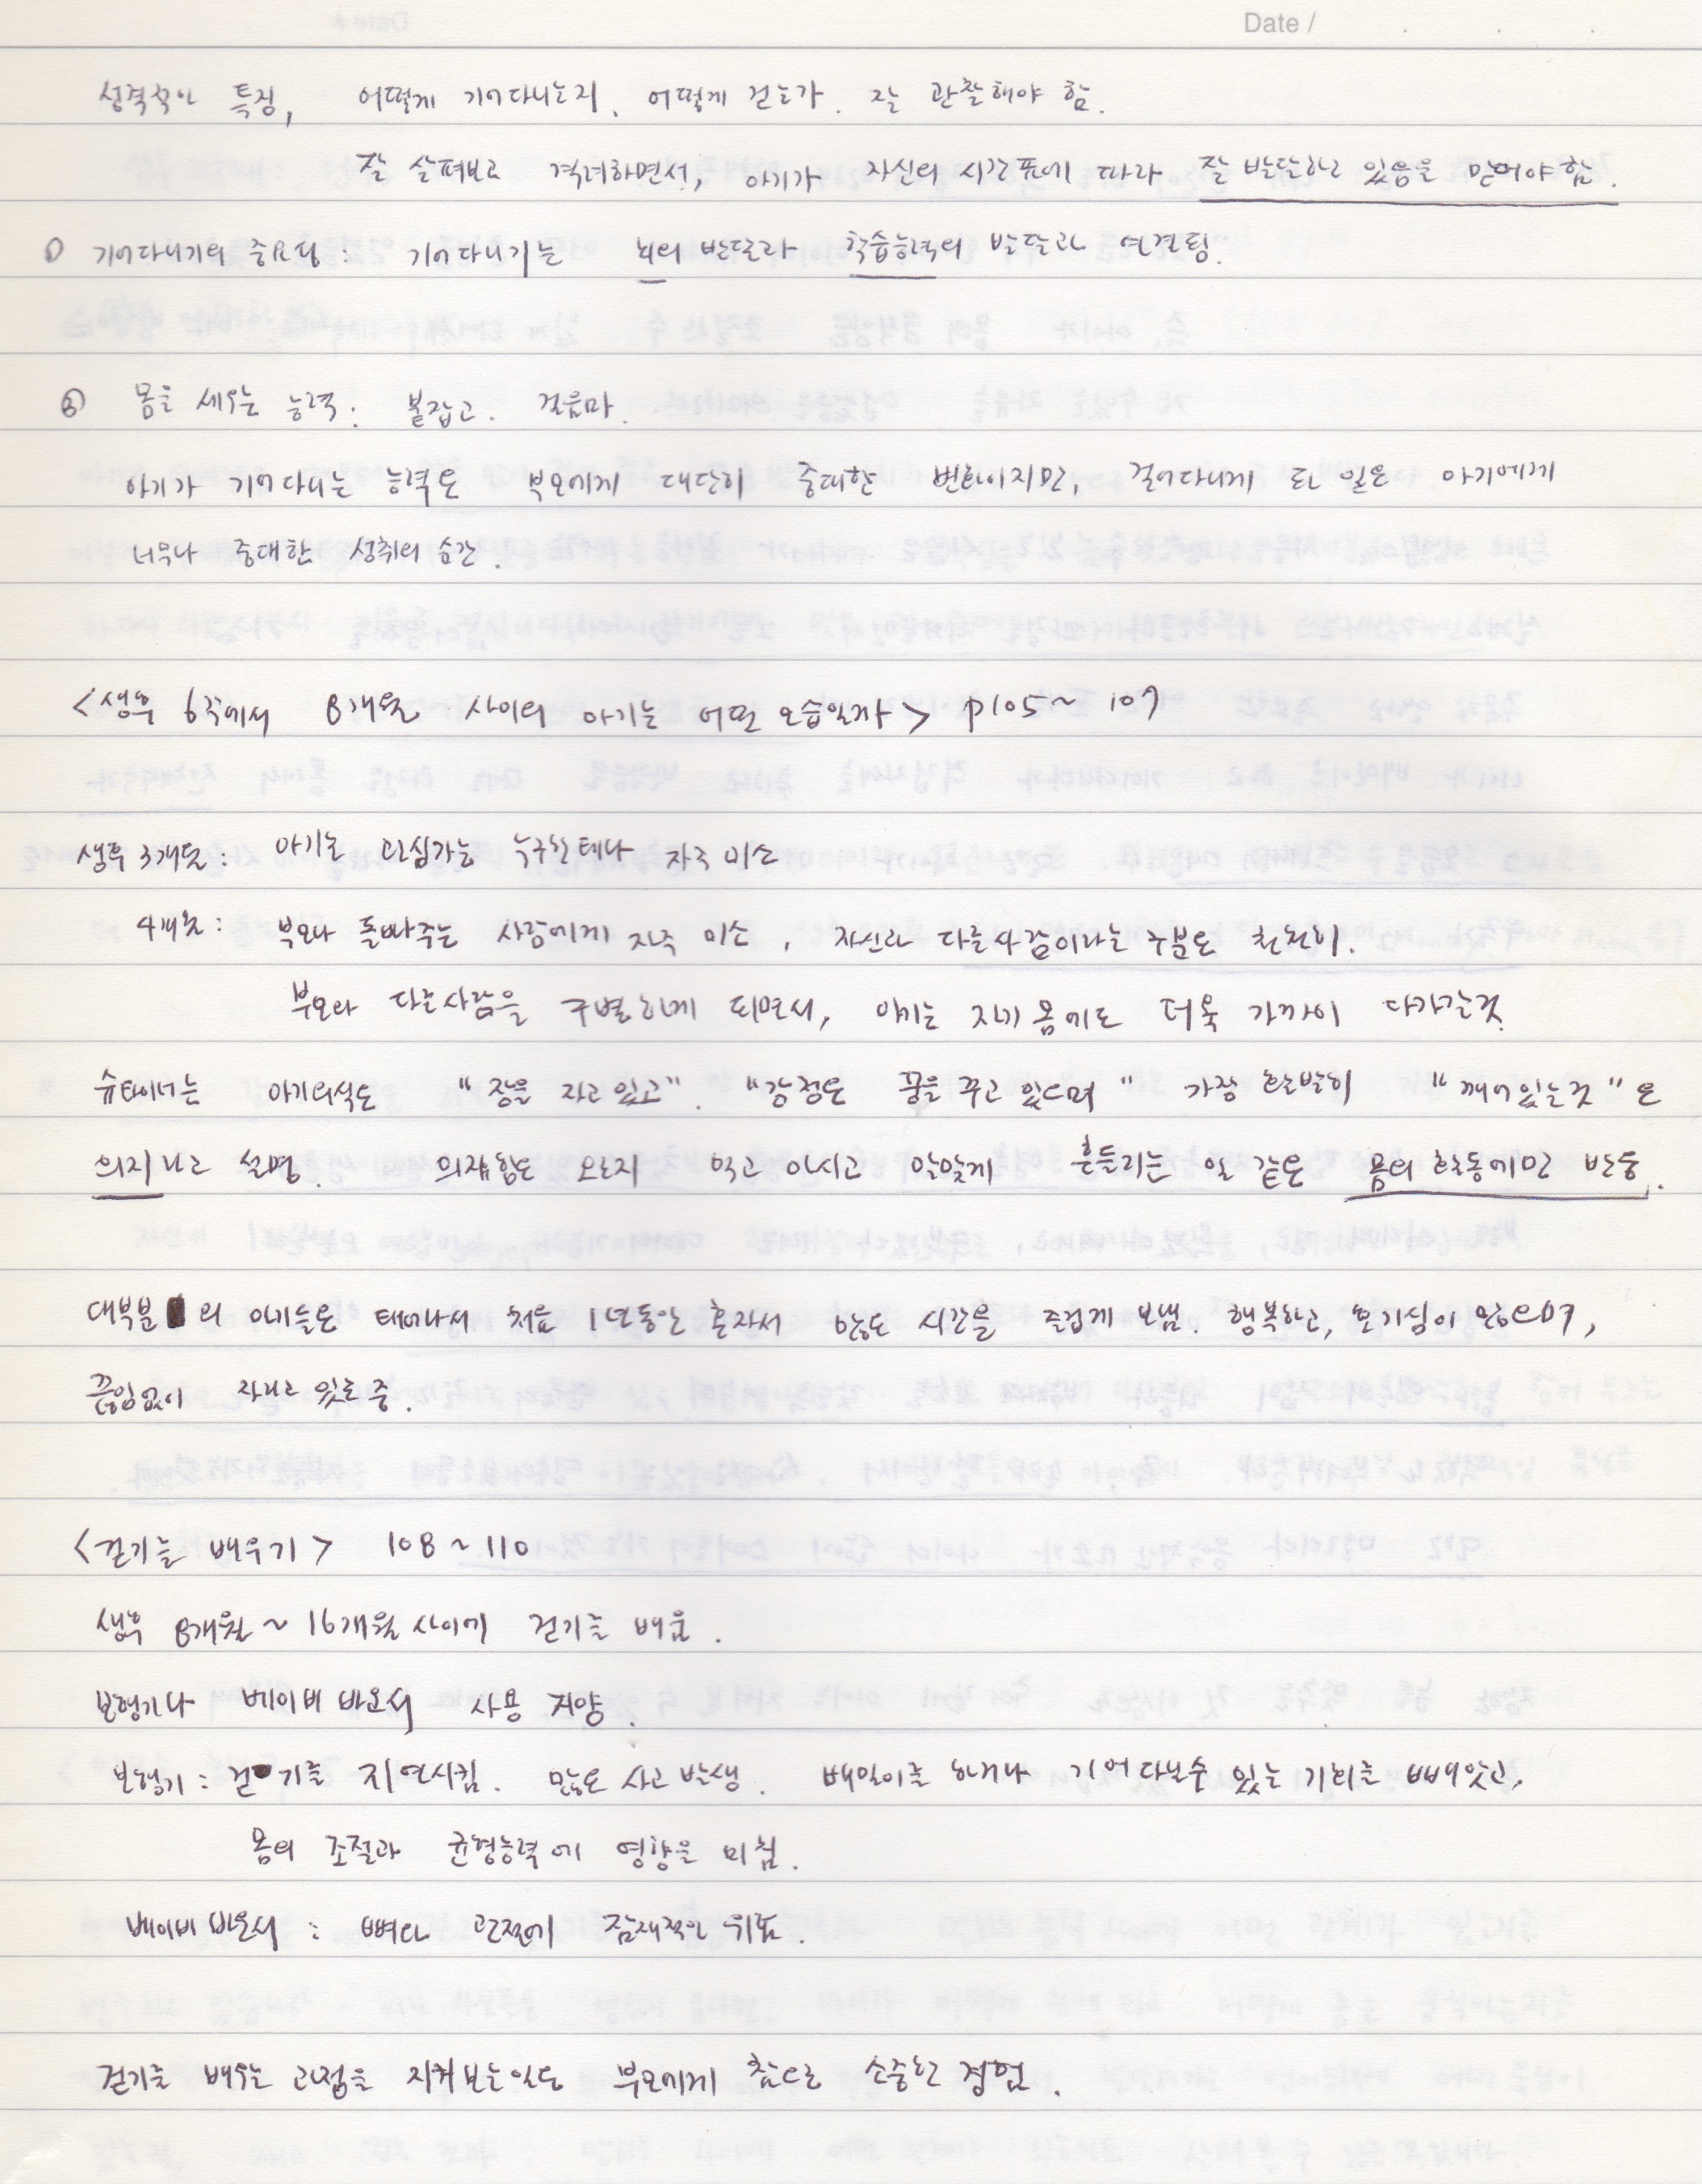 Date /
성격적인 특징, 어떻게 기어다니는지, 어떻게 걷는가. 잘 관찰해야 함.
잘 살펴보고 격려하면서, 아기가 자신의 시간표에 따라 잘 발달하고 있음을 믿어야 함.
① 기어다니기의 중요점 : 기어다니기는 뇌의 발달과 학습능력의 발달과 연결됨.
⑥ 몸을 세우는 능력: 붙잡고. 걸음마.
아기가 기어다니는 능력은 부모에게 대단히 중대한 변화이지만, 걸어다니게 된 일은 아기에게
너무나 중대한 성취의 순간.
<생후 6주에서 8개월 사이의 아기는 어떤 모습일까> p105~107
생후 3개월 : 아기는 관심가는 누구한테나 자주 미소
4개월 : 부모나 돌봐주는 사람에게 자주 미소, 자신과 다른사람이라는 구분도 천천히.
부모와 다른사람을 구별하게 되면서, 아기는 자기 몸에도 더욱 가까이 다가갈것.
슈타이너는 아기의식은 "잠을 자고 있고". "감정은 꿈을 꾸고 있으며" 가장 활발히 "깨어있는것"은
의지라고 설명. 오로지 먹고 마시고 알맞게 흔들리는 일 같은 몸의 활동에만 반응.
대부분의 아기들은 태어나서 처음 1년동안 혼자서 많은 시간을 즐겁게 보냄. 행복하고, 호기심이 많으며,
끊임없이 자라고 있는 중.
<걷기를 배우기> 108~110
생후 8개월~16개월 사이에 걷기를 배움.
보행기나 베이비 바운서 사용 지양.
보행기 : 걷기를 지연시킴. 많은 사고 발생. 배밀이를 하거나 기어다닐수 있는 기회를 빼앗고,
몸의 조절과 균형능력에 영향을 미침.
베이비 바운서 : 뼈와 관절에 잠재적인 위험.
걷기를 배우는 과정을 지켜보는일은 부모에게 참으로 소중한 경험.